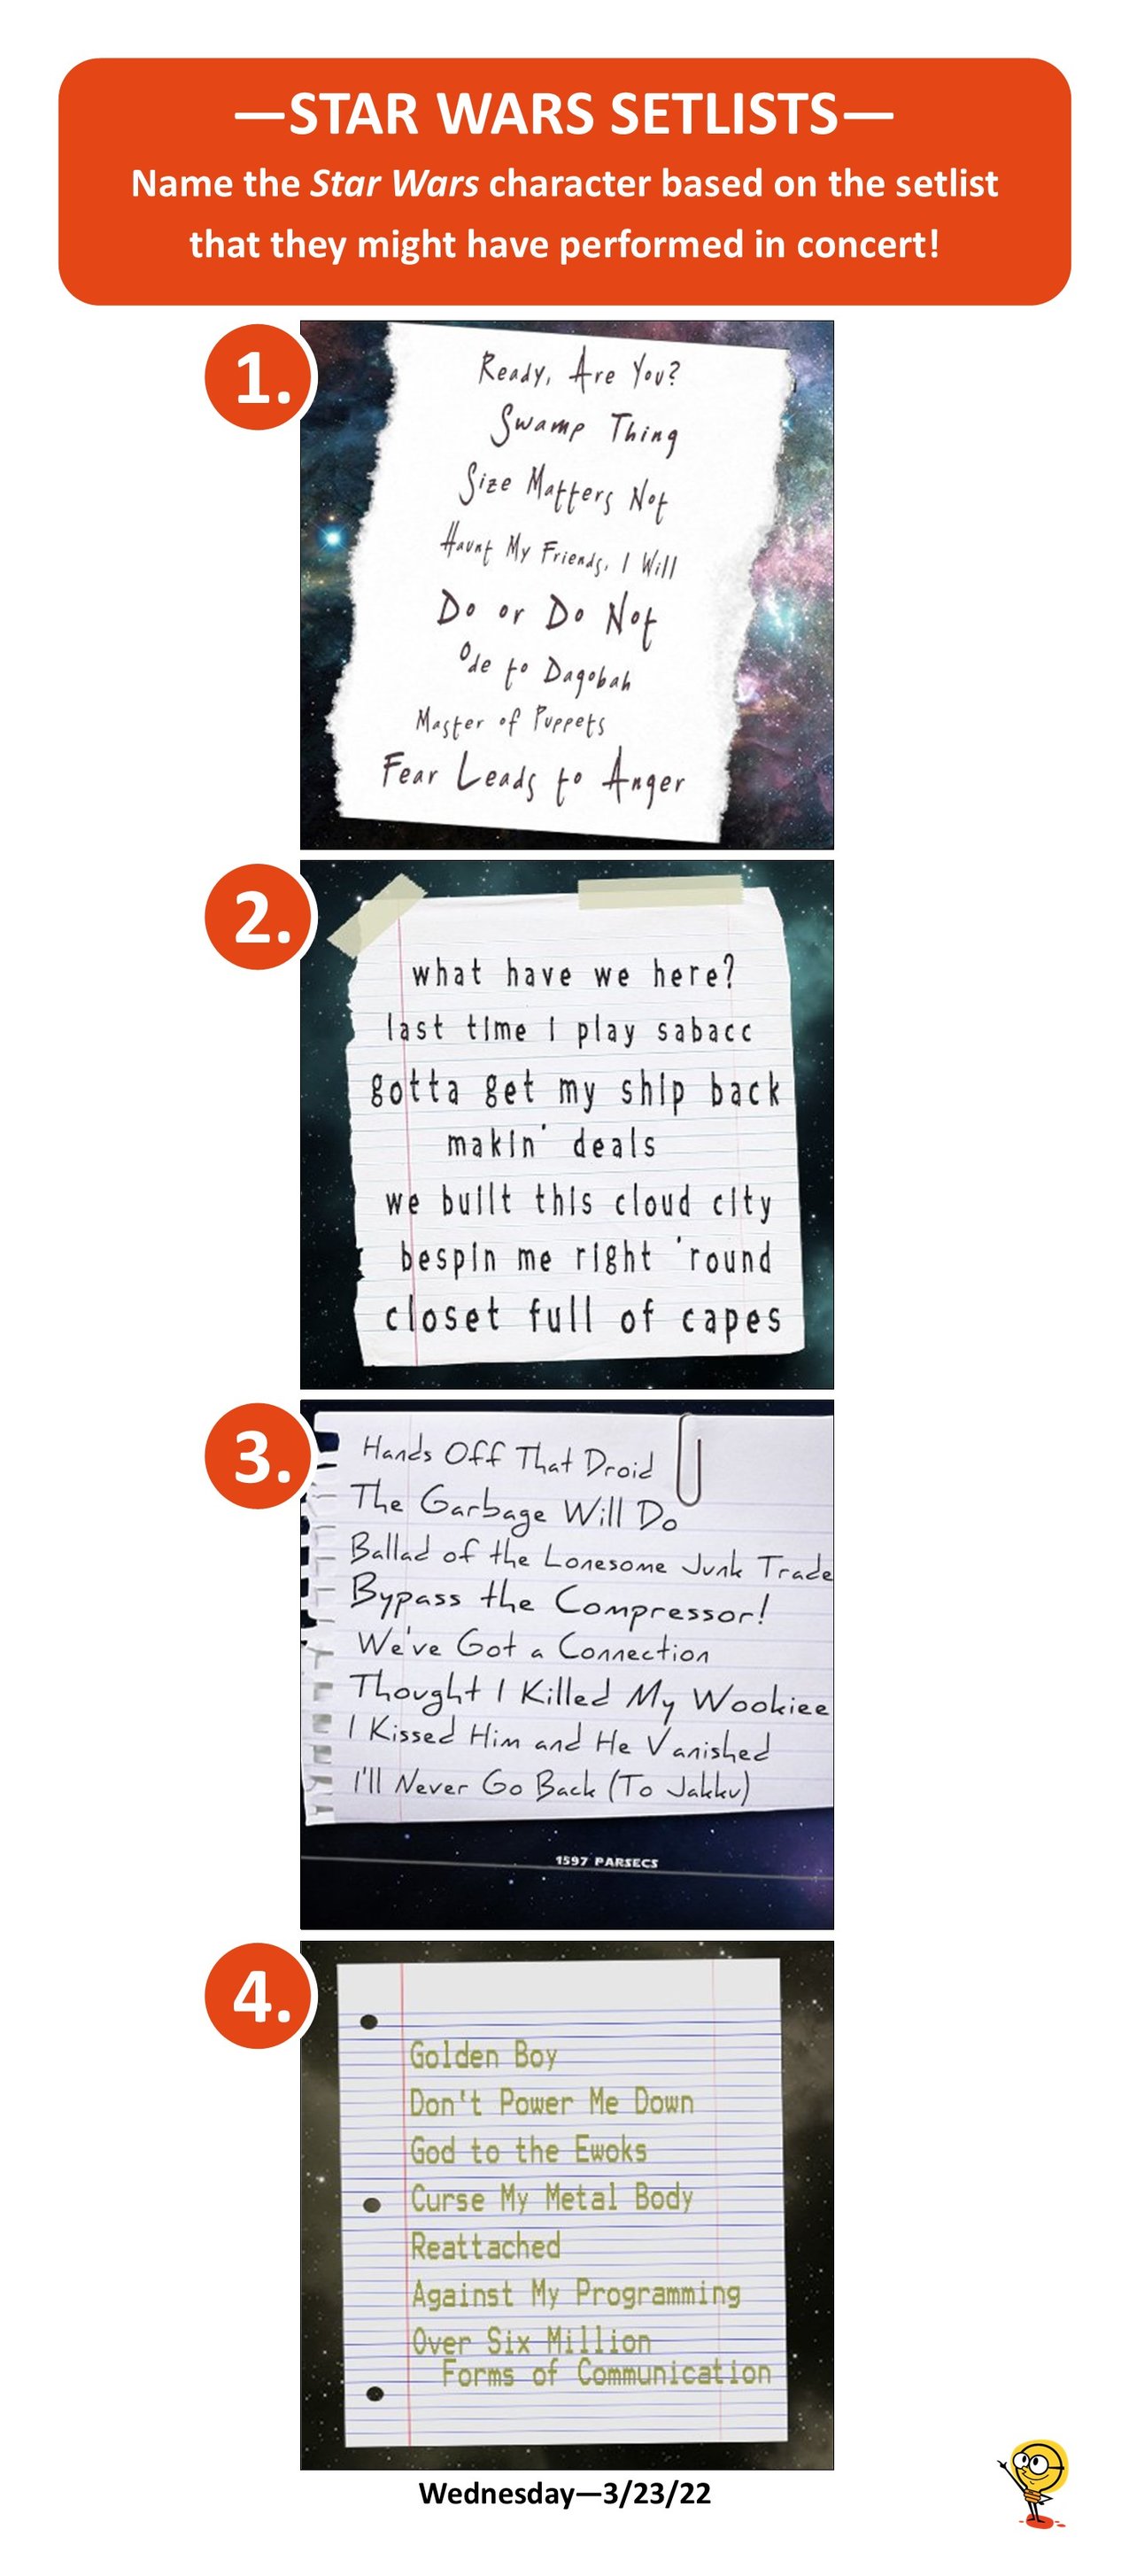 —STAR WARS SETLISTS—
Name the Star Wars character based on the setlist
that they might have performed in concert!
1.
Ready, Are You?
Swamp Thing
Size Matters Not
Haunt My Friends, I Will
Do or Do Not
Ode to Dagobah
Master of Puppets
Fear Leads to Anger
2.
what have we here?
last time I play sabacc
gotta get my ship back
makin' deals
we built this cloud city
bespin me right 'round
closet full of capes
3.
Hands Off That Droid
The Garbage Will Do
Ballad of the Lonesome Junk Trade
Bypass the Compressor!
We've Got a Connection
Thought I Killed My Wookiee
I Kissed Him and He Vanished
I'll Never Go Back (To Jakku)
1597 PARSECS
4.
Golden Boy
Don't Power Me Down
God to the Ewoks
Curse My Metal Body
Reattached
Against My Programming
Over Six Million
Forms of Communication
Wednesday—3/23/22